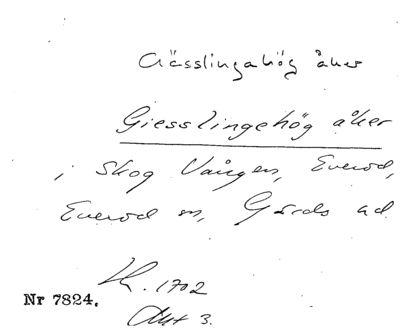 Gässlingahög åker
Giesslingehög åker
i Skog Vången, Everöd,
Everöd sn, Gärds hd
1702
Nr 7824.
Akt 3.